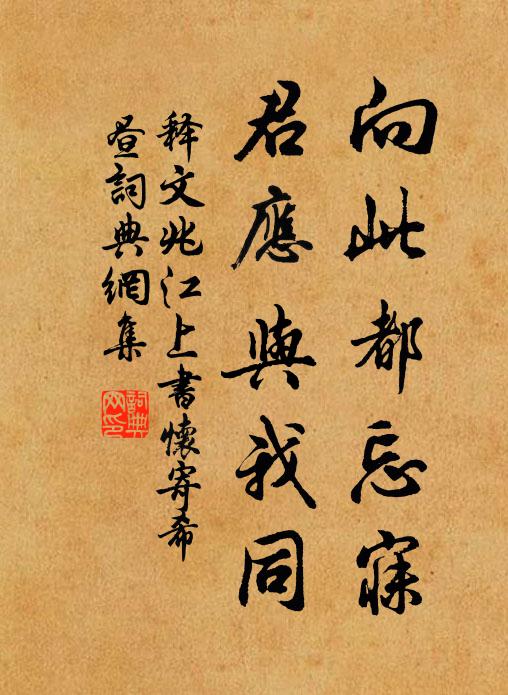 向此都忘寐
君應與我同
释文兆江上書懷寄希
晝詞典網集
詞典
网印